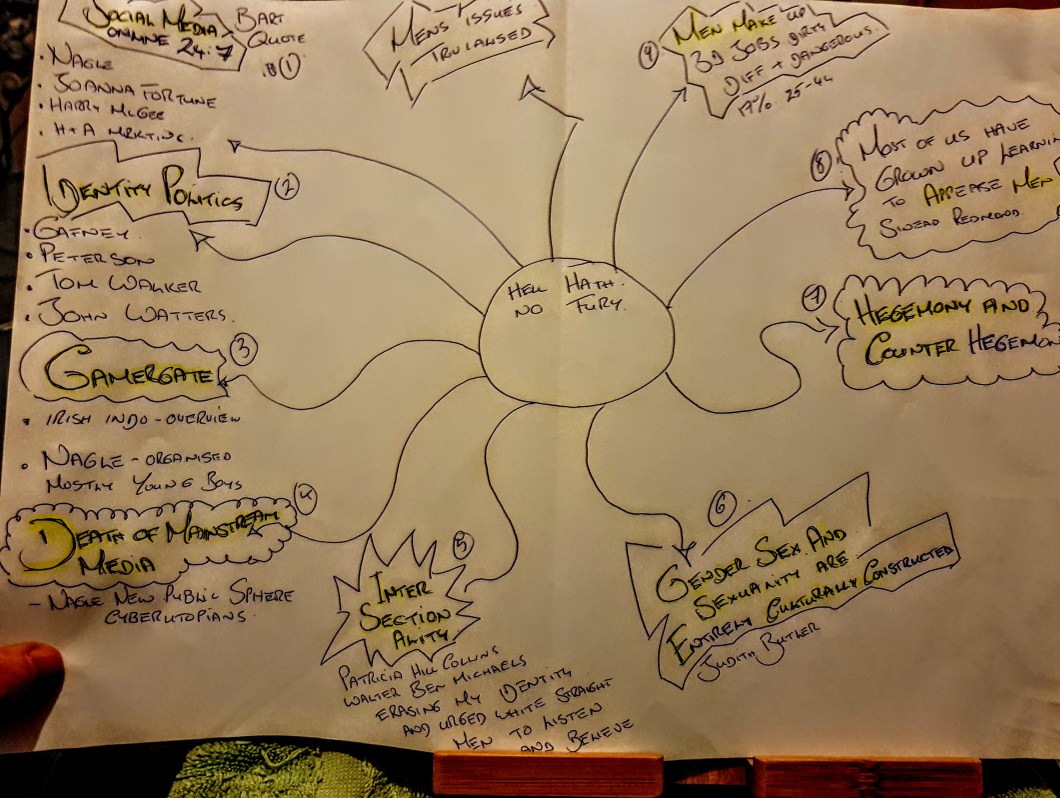 HELL HATH
NO FURY.
SOCIAL MEDIA
ONLINE 24:7
BART
QUOTE
(1)
• NAGLE
• JOANNA FORTUNE
• HARRY McGEE
• H+A MRKTING.
IDENTITY POLITICS
(2)
• GAFNEY.
• PETERSON
• TOM WALKER
• JOHN WATTERS.
GAMERGATE
(3)
• IRISH INDO - OVERVIEW
• NAGLE - ORGANISED
MOSTLY YOUNG BOYS
(4)
DEATH OF MAINSTREAM
MEDIA
- NAGLE NEW PUBLIC SPHERE
CYBERUTOPIANS.
(5)
INTER
SECTION
ALITY
PATRICIA HILL COLLINS
WALTER BEN MICHAELS
ERASING MY IDENTITY
AND URGED WHITE STRAIGHT
MEN TO LISTEN
AND BELIEVE
(6)
GENDER SEX AND
SEXUALITY ARE
ENTIRELY CULTURALLY CONSTRUCTED
JUDITH BUTLER
(7)
HEGEMONY AND
COUNTER HEGEMON
(8)
MOST OF US HAVE
GROWN UP LEARNIN
TO APPEASE MEN
SINEAD REDMOND.
(9)
MEN MAKE UP
3D JOBS DIRTY
DIFF + DANGEROUS.
17% 25-44
MENS ISSUES